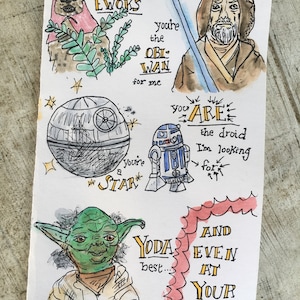 EWOKS
you're
the
OBI
WAN
for me
you ARE
the droid
I'm looking
for
you're
a
STAR
YODA
best...
AND
EVEN
AT
YOUR